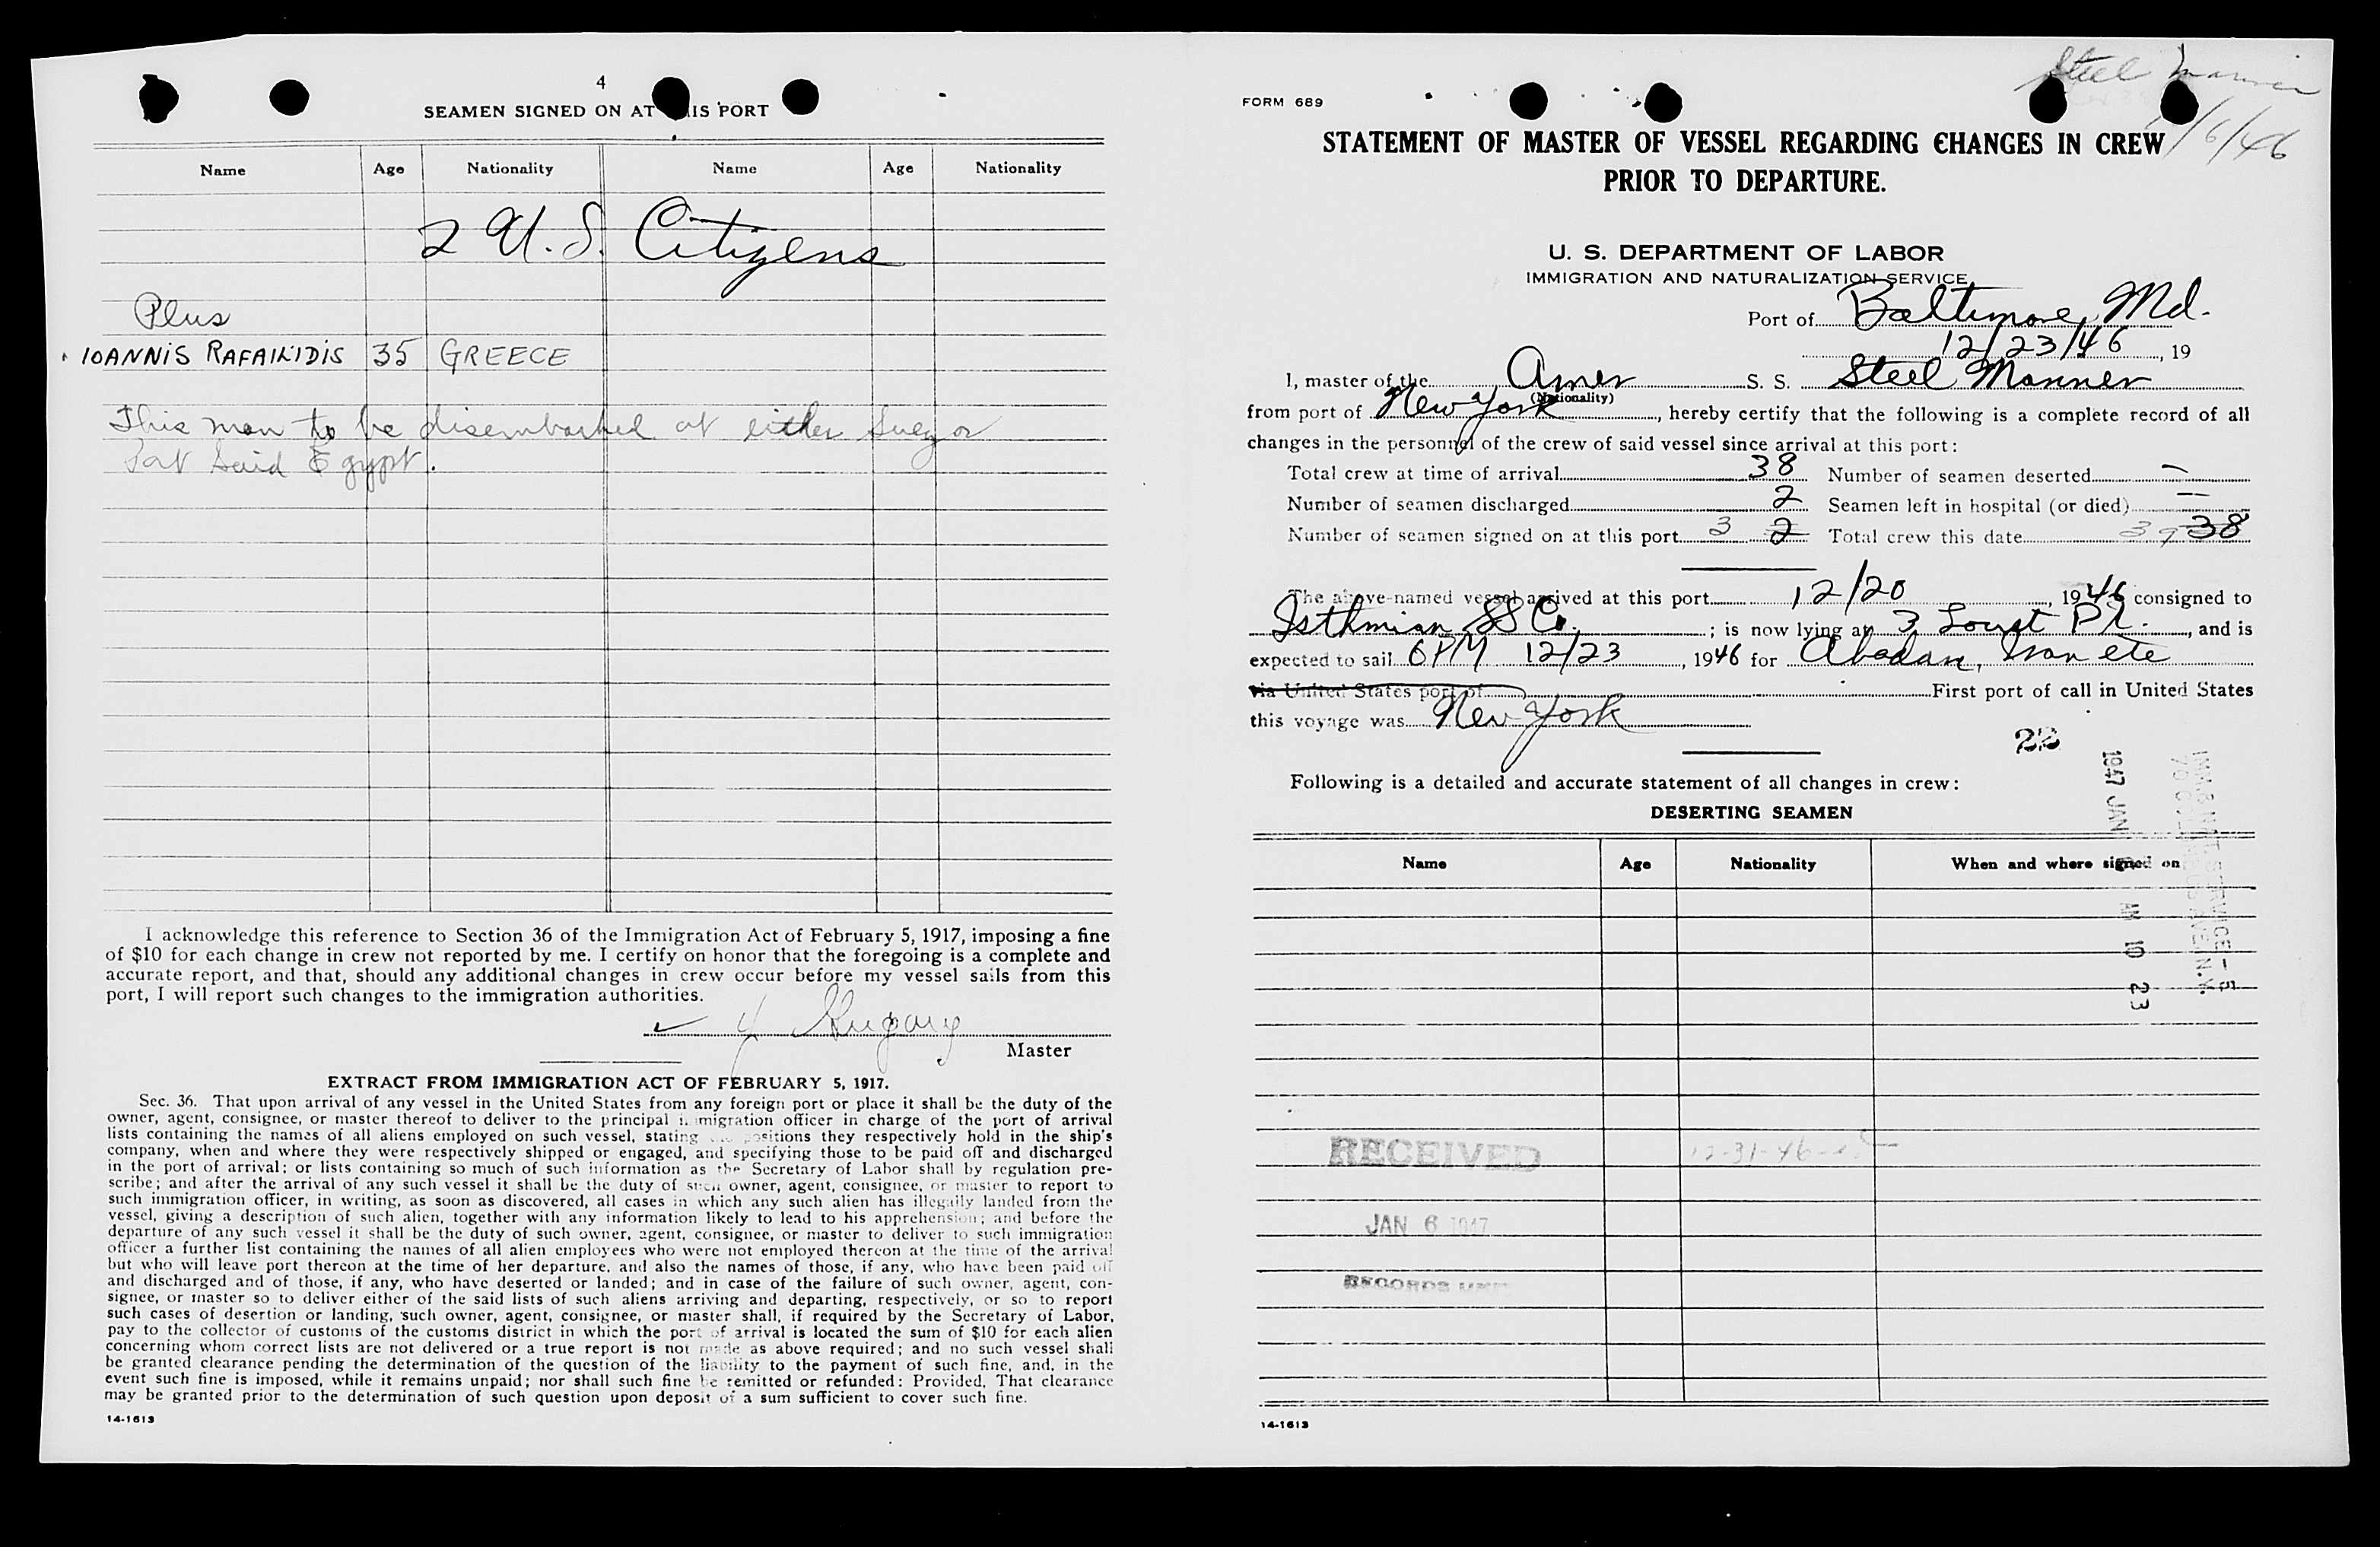 4
SEAMEN SIGNED ON AT IS PORT
Name Age Nationality Name Age Nationality
2 U.S. Citizens
Plus
IOANNIS RAFAILIDIS 35 GREECE
This man to be disembarked at either Suez or
Port Said Egypt.
I acknowledge this reference to Section 36 of the Immigration Act of February 5, 1917, imposing a fine
of $10 for each change in crew not reported by me. I certify on honor that the foregoing is a complete and
accurate report, and that, should any additional changes in crew occur before my vessel sails from this
port, I will report such changes to the immigration authorities.
Master
EXTRACT FROM IMMIGRATION ACT OF FEBRUARY 5, 1917.
Sec. 36. That upon arrival of any vessel in the United States from any foreign port or place it shall be the duty of the
owner, agent, consignee, or master thereof to deliver to the principal immigration officer in charge of the port of arrival
lists containing the names of all aliens employed on such vessel, stating the positions they respectively hold in the ship's
company, when and where they were respectively shipped or engaged, and specifying those to be paid off and discharged
in the port of arrival; or lists containing so much of such information as the Secretary of Labor shall by regulation pre-
scribe; and after the arrival of any such vessel it shall be the duty of such owner, agent, consignee, or master to report to
such immigration officer, in writing, as soon as discovered, all cases in which any such alien has illegally landed from the
vessel, giving a description of such alien, together with any information likely to lead to his apprehension; and before the
departure of any such vessel it shall be the duty of such owner, agent, consignee, or master to deliver to such immigration
officer a further list containing the names of all alien employees who were not employed thereon at the time of the arrival
but who will leave port thereon at the time of her departure, and also the names of those, if any, who have been paid off
and discharged and of those, if any, who have deserted or landed; and in case of the failure of such owner, agent, con-
signee, or master so to deliver either of the said lists of such aliens arriving and departing, respectively, or so to report
such cases of desertion or landing, such owner, agent, consignee, or master shall, if required by the Secretary of Labor,
pay to the collector of customs of the customs district in which the port of arrival is located the sum of $10 for each alien
concerning whom correct lists are not delivered or a true report is not made as above required; and no such vessel shall
be granted clearance pending the determination of the question of the liability to the payment of such fine, and, in the
event such fine is imposed, while it remains unpaid; nor shall such fine be remitted or refunded: Provided, That clearance
may be granted prior to the determination of such question upon deposit of a sum sufficient to cover such fine.
14-1613
Steel Mariner
/6/46
FORM 689
STATEMENT OF MASTER OF VESSEL REGARDING CHANGES IN CREW
PRIOR TO DEPARTURE.
U. S. DEPARTMENT OF LABOR
IMMIGRATION AND NATURALIZATION SERVICE
Port of Baltimore, Md.
12/23/46, 19
I, master of the Amer S. S. Steel Mariner
(Nationality)
from port of New York, hereby certify that the following is a complete record of all
changes in the personnel of the crew of said vessel since arrival at this port:
Total crew at time of arrival 38 Number of seamen deserted —
Number of seamen discharged 2 Seamen left in hospital (or died) —
Number of seamen signed on at this port 3 2 Total crew this date 39 38
The above-named vessel arrived at this port 12/20, 1946 consigned to
Isthmian SS Co.; is now lying at 3 Locust Pt., and is
expected to sail 6PM 12/23, 1946 for Abadan, Iran etc
via United States port of First port of call in United States
this voyage was New York
22
Following is a detailed and accurate statement of all changes in crew:
DESERTING SEAMEN
Name Age Nationality When and where signed on
1947 JAN AM 10 23
RECEIVED
12-31-46
JAN 6 1947
RECORDS
14-1613